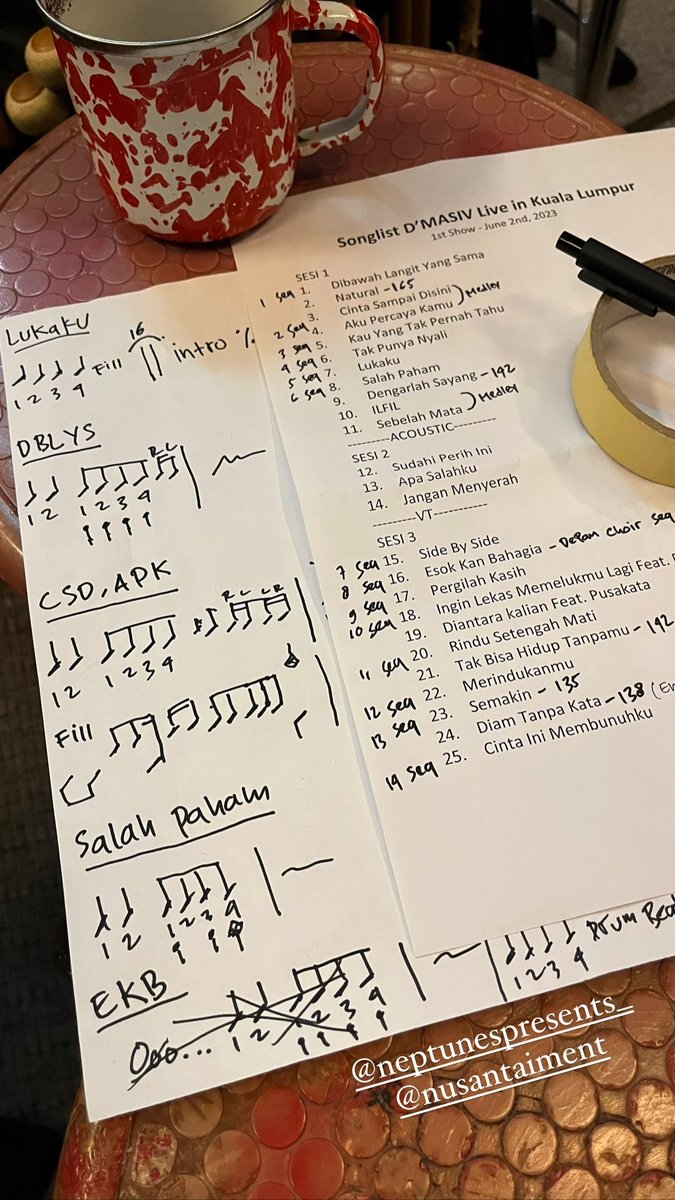 LUKAKU
16
Fill
intro %
1 2 3 4
DBLYS
R L
1 2 1 2 3 4
CSD, APK
R L L R
1 2 1 2 3 4
Fill
Salah Paham
1 2 1 2 3 4
EKB
Ooo... 1 2 1 2 3 4
1 2 3 4
Drum
Songlist D'MASIV Live in Kuala Lumpur
1st Show - June 2nd, 2023
SESI 1
1 seq 1. Dibawah Langit Yang Sama
2. Natural - 165
3. Cinta Sampai Disini
2 seq 4. Aku Percaya Kamu ) Medley
3 seq 5. Kau Yang Tak Pernah Tahu
4 seq 6. Tak Punya Nyali
5 seq 7. Lukaku
6 seq 8. Salah Paham
9. Dengarlah Sayang - 142
10. ILFIL
11. Sebelah Mata ) Medley
---------ACOUSTIC---------
SESI 2
12. Sudahi Perih Ini
13. Apa Salahku
14. Jangan Menyerah
---------VT-----------
SESI 3
7 seq 15. Side By Side
8 seq 16. Esok Kan Bahagia - Depan choir seq
9 seq 17. Pergilah Kasih
10 seq 18. Ingin Lekas Memelukmu Lagi Feat.
19. Diantara kalian Feat. Pusakata
11 seq 20. Rindu Setengah Mati
21. Tak Bisa Hidup Tanpamu - 142
12 seq 22. Merindukanmu
13 seq 23. Semakin - 135
24. Diam Tanpa Kata - 138
14 seq 25. Cinta Ini Membunuhku
@neptunespresents_
@nusantaiment